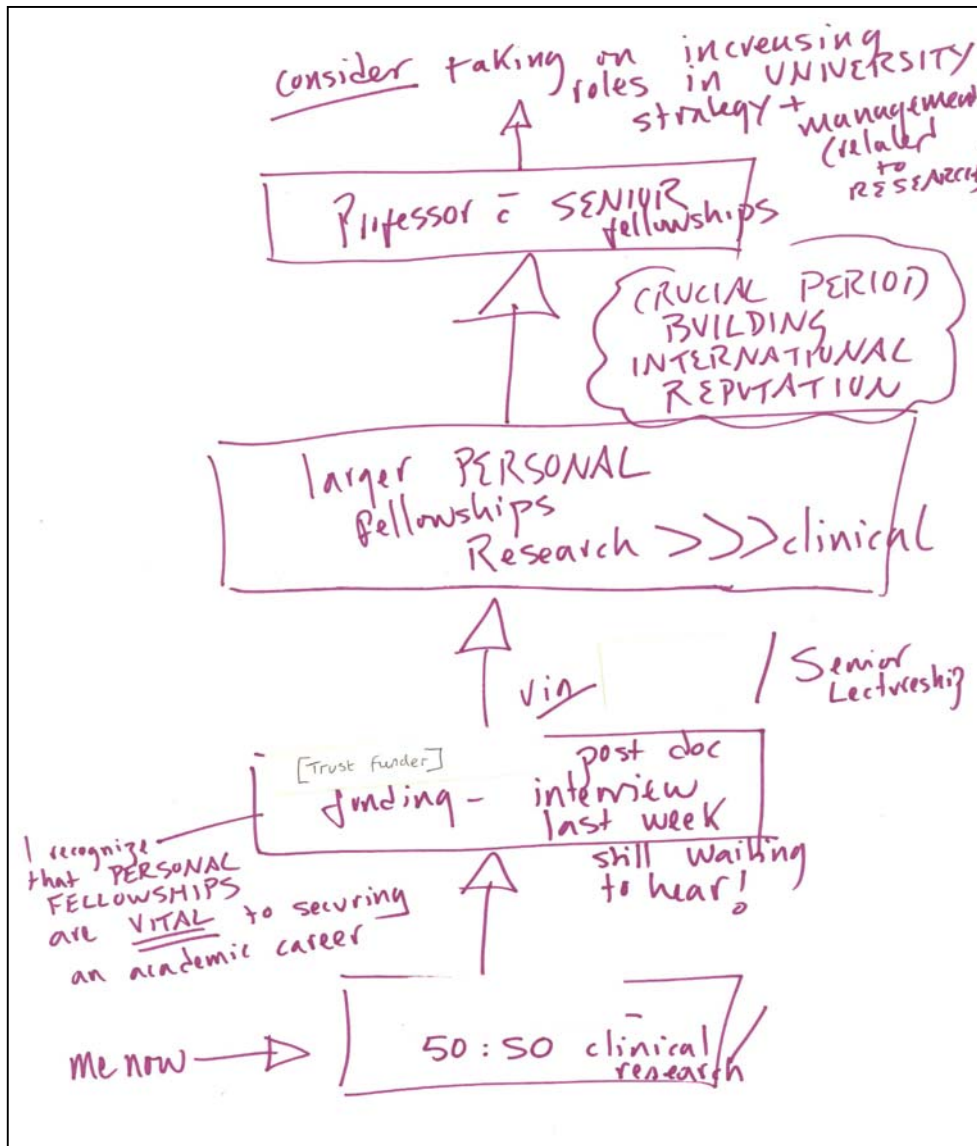 consider taking on increasing
roles in UNIVERSITY
strategy + management
(related
to
RESEARCH
Professor c̄ SENIOR
fellowships
CRUCIAL PERIOD
BUILDING
INTERNATIONAL
REPUTATION
larger PERSONAL
fellowships
Research >>> clinical
via / Senior
Lectureship
[Trust funder] post doc
funding - interview
last week
still waiting
to hear!
I recognize
that PERSONAL
FELLOWSHIPS
are VITAL to securing
an academic career
me now
50:50 clinical /
research